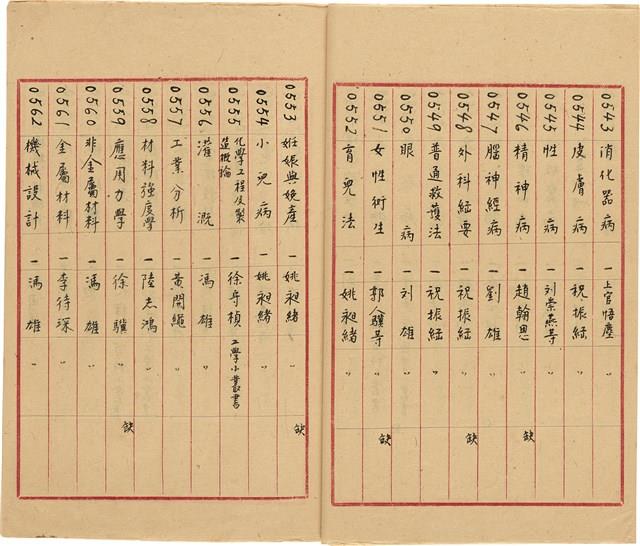 0543 消化器病 一 上官悟塵 〃
0544 皮膚病 一 祝振綱 〃
0545 性病 一 刘崇燕等 〃
0546 精神病 一 趙翰恩 〃 缺
0547 腦神經病 一 劉雄 〃
0548 外科紐要 一 祝振紐 〃 缺
0549 普通救護法 一 祝振紐 〃
0550 眼病 一 刘雄 〃
0551 女性衍生 一 郭人驥等 〃 缺
0552 育兒法 一 姚昶緒 〃
0553 妊娠與娩產 一 姚昶緒 〃 缺
0554 小兒病 一 姚昶緒 〃
0555 化學工程及製造概論 一 徐守楨 工學小叢書
0556 灌溉 一 馮雄 〃
0557 工業分析 一 黃開繩 〃
0558 材料強度學 一 陸志鴻 〃
0559 應用力學 一 徐驥 〃 缺
0560 非金屬材料 一 馮雄 〃
0561 金屬材料 一 李待琛 〃
0562 機械設計 一 馮雄 〃